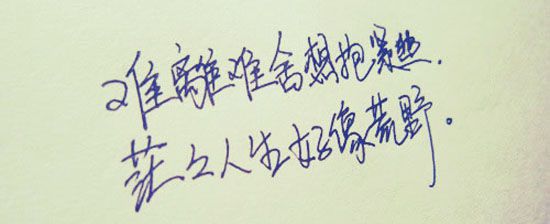 难離难舍想抱紧些.
茫々人生好像荒野。